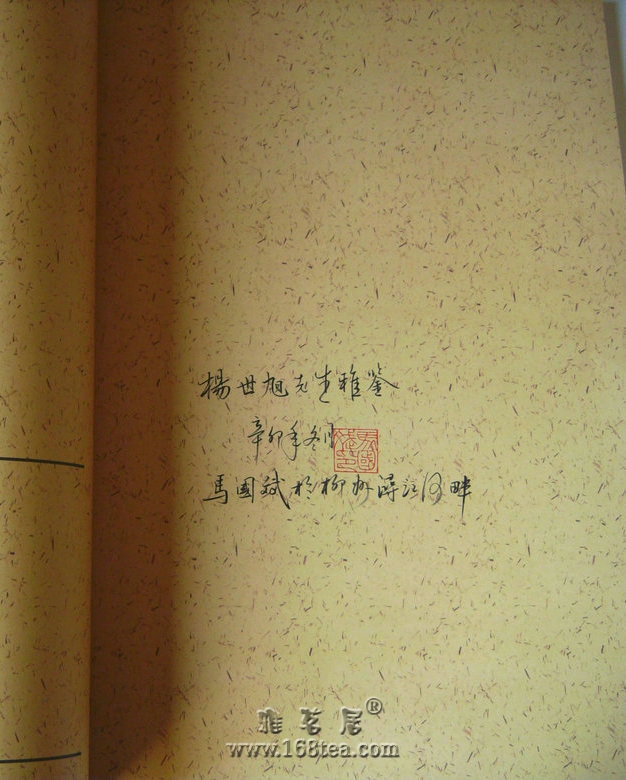 楊世旭先生雅鉴
辛卯年冬月
馬國斌於柳州潯江河畔
雅茗居®
www.168tea.com